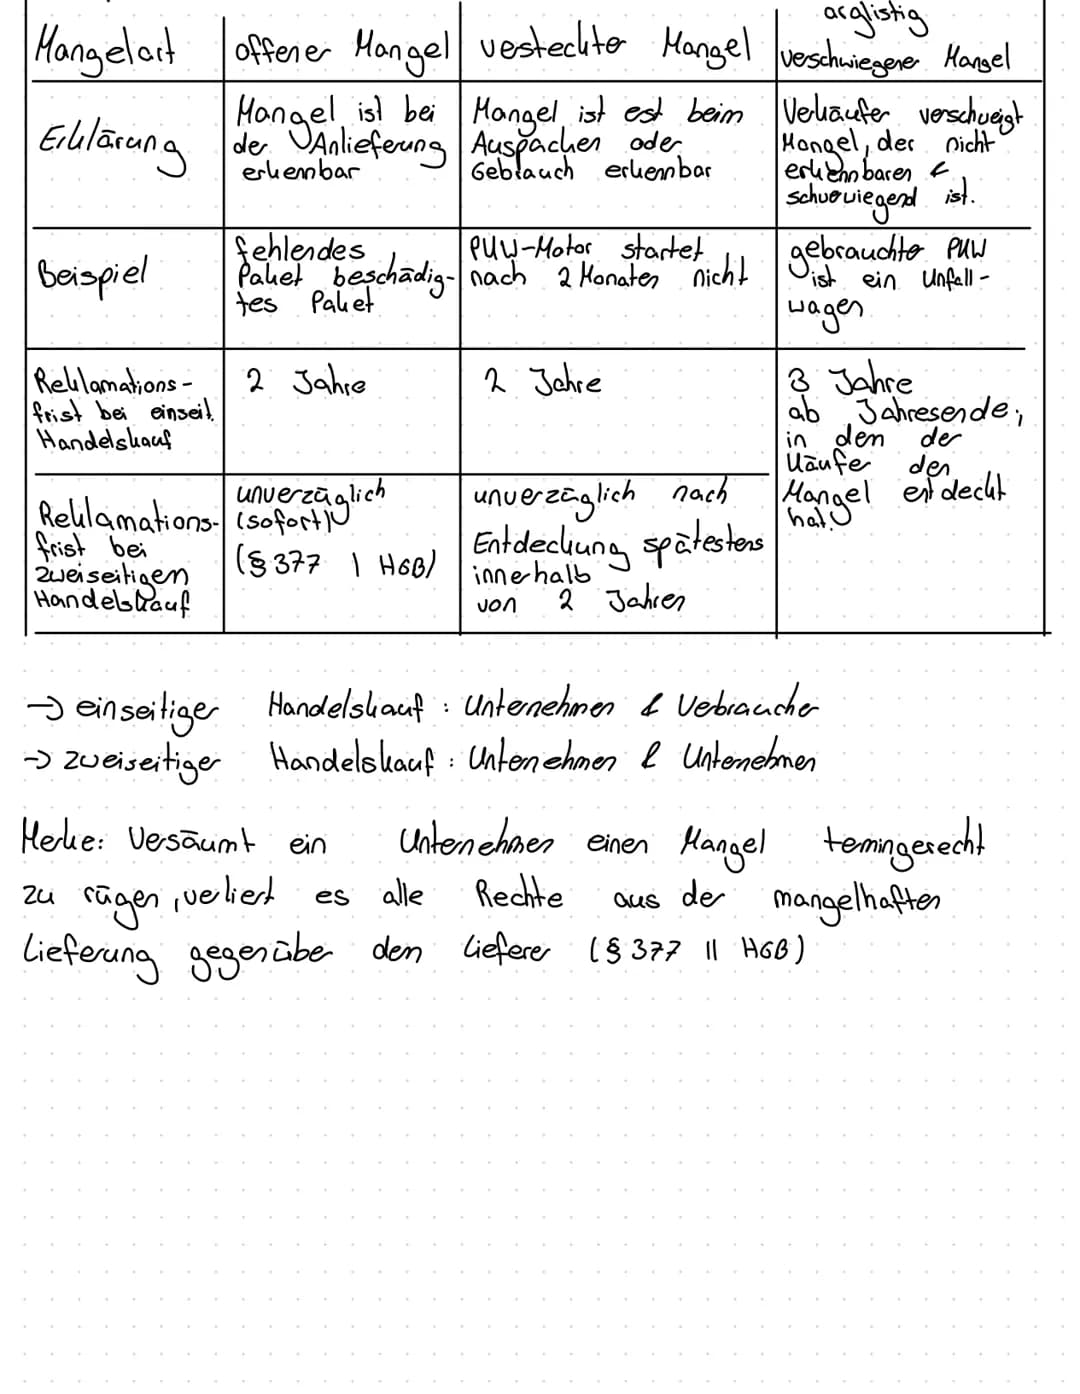 Mangelart | offener Mangel | vesteckter Mangel | arglistig verschwiegener Mangel
Erklärung | Mangel ist bei der Anlieferung erkennbar | Mangel ist est beim Auspacken oder Gebrauch erkennbar | Verkäufer verschweigt Mangel, der nicht erkennbaren & schwerwiegend ist.
Beispiel | fehlendes Paket beschädig-tes Paket | PKW-Motor startet nach 2 Monaten nicht | gebrauchter PKW ist ein Unfall-wagen
Reklamations-frist bei einseit. Handelskauf | 2 Jahre | 2 Jahre | 3 Jahre ab Jahresende, in dem der Käufer den Mangel entdeckt hat.
Reklamations-frist bei zweiseitigen Handelskauf | unverzüglich (sofort) (§ 377 I HGB) | unverzüglich nach Entdeckung spätestens innerhalb von 2 Jahren
→ einseitiger Handelskauf : Unternehmen & Verbraucher
→ zweiseitiger Handelskauf : Unternehmen & Unternehmen
Merke: Versäumt ein Unternehmen einen Mangel termingerecht
zu rügen, verliert es alle Rechte aus der mangelhaften
Lieferung gegenüber den Lieferer (§ 377 II HGB)